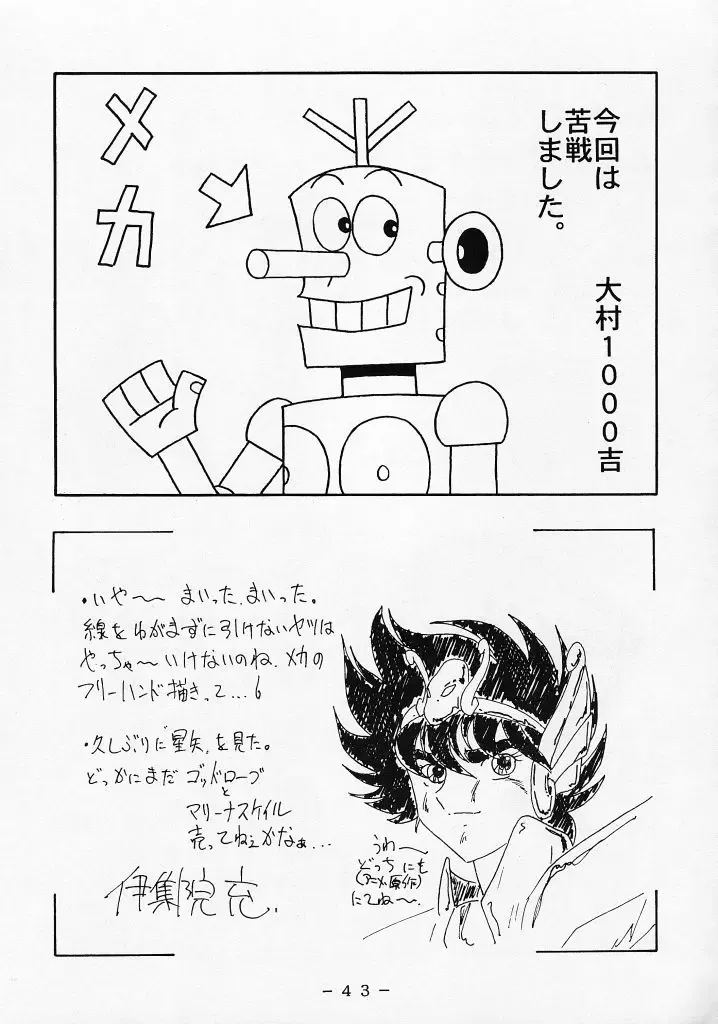 今回は
苦戦
しました。
大村1000吉
メカ
・いや〜〜 まいった、まいった。
線をゆがまずに引けないヤツは
やっちゃ〜いけないのね、メカの
フリーハンド描きって…6
・久しぶりに"星矢"を見た。
どっかにまだ ゴッドローブ
と
マリーナスケイル
売ってねぇかなぁ…
伊集院充.
うわ〜
どっちにも
(アニメ・原作)
にてね〜.
-43-